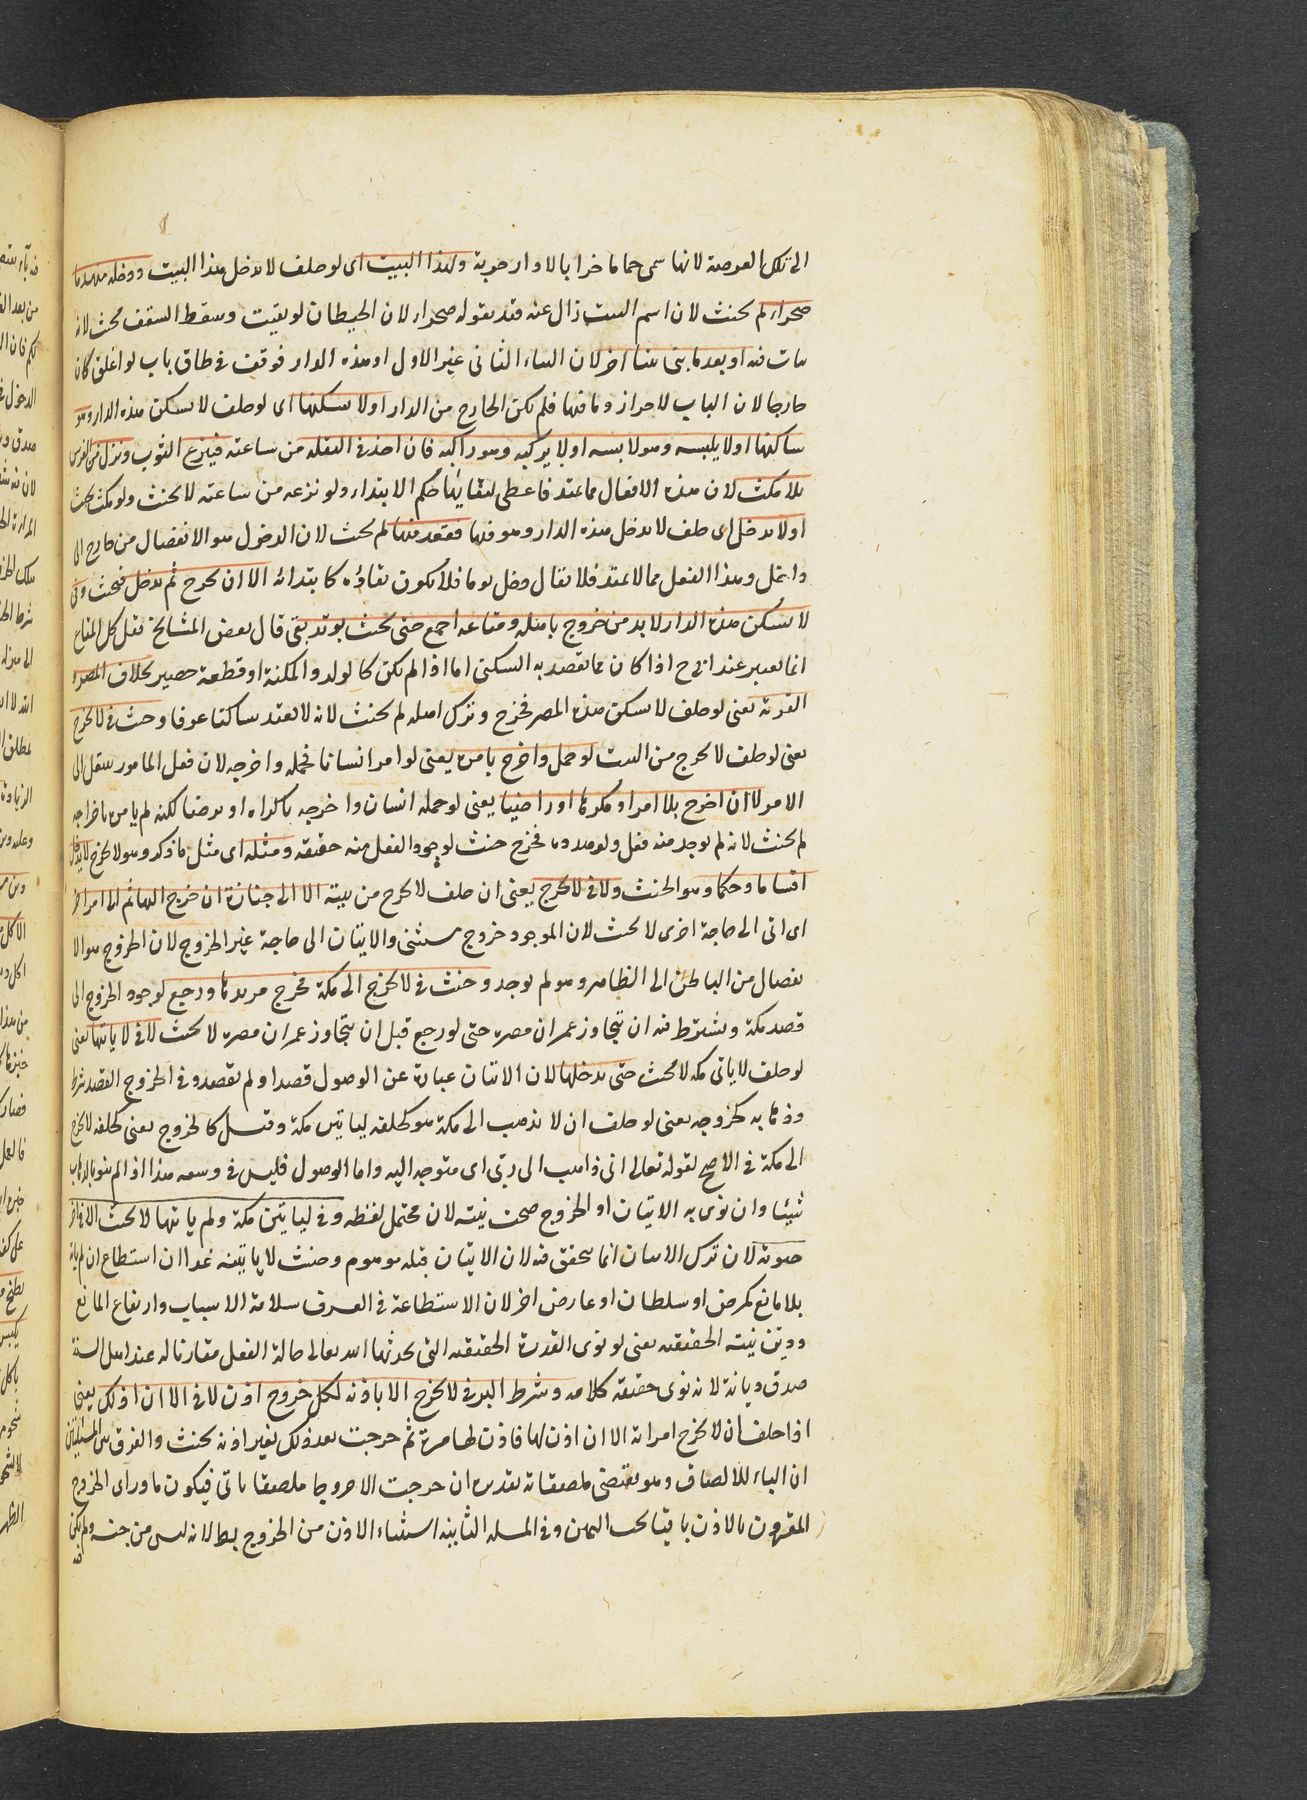 الى تلك العرصة لانها سمى حماما خرابا لا دار خربة ولهذا البيت اى لو حلف لا يدخل هذا البيت ودخله منهدما
صحراء لم يحنث لان اسم البيت زال عنه قيد بقوله صحراء لان الحيطان لو بقيت وسقط السقف يحنث لانه
يبات فيه او بعد ما بنى بيتا اخر لان البناء الثانى غير الاول او هذه الدار فوقف فى طاق باب لو اغلق كان
خارجا لان الباب لاحراز وما فيها فلم يكن الخارج من الدار او لا يسكنها اى لو حلف لا يسكن هذه الدار وهو
ساكنها او لا يلبسه وهو لابسه او لا يركبه وهو راكبه فان اخذ فى النقله من ساعته فينزع الثوب ونزل من الفرس
بلا مكث لان هذه الافعال مما يمتد فاعطى لبقائها حكم الابتداء ولو نزعه من ساعته لا يحنث ولو مكث يحنث
او لا يدخل اى حلف لا يدخل هذه الدار وهو فيها فقعد فيها لم يحنث لان الدخول هو الانفصال من خارج الى
داخل وهذا الفعل مما لا يمتد فلا يقال دخل يوما فلا يكون بقاؤه كابتدائه الا ان يخرج ثم يدخل فيحنث وفى
لا يسكن هذه الدار لا بد من خروج باهله ومتاعه اجمع حتى يحنث بوتد بقى قال بعض المشايخ نقل كل المتاع
انما يعتبر عند ابى ح اذا كان مما يقصد به السكنى اما اذا لم يكن كالوتد والمكنسة او قطعة حصير بخلاف المصر و
القرية يعنى لو حلف لا يسكن هذه المصر فخرج وترك اهله لم يحنث لانه لا يعتد ساكنا عرفا وحنث فى لا يخرج
يعنى لو حلف لا يخرج من البيت لو حمل واخرج بامره يعنى لو امر انسانا فحمله واخرجه لان فعل المامور ينتقل الى
الامر لا ان اخرج بلا امر او مكرها او راضيا يعنى لو حمله انسان واخرجه باكراه او برضا لكنه لم يامره باخراجه
لم يحنث لانه لم يوجد منه فعل ولو هدده فخرج حنث لوجود الفعل منه حقيقه ومثله اى مثل ما ذكر وهو لا يخرج لا يدخل
اقساما وحكما وهو الحنث ولا فى لا يخرج يعنى ان حلف لا يخرج من بيته الا الى جنازة ان خرج اليها ثم الى امر اخر
اى اتى الى حاجة اخرى لا يحنث لان الموجود خروج مستثنى والاتيان الى حاجة غير الخروج لان الخروج هو الا
نفصال من الباطن الى الظاهر وهو لم يوجد وحنث فى لا يخرج الى مكة فخرج مريدها ورجع لوجود الخروج الى
قصد مكة ويشترط فيه ان يتجاوز عمران مصره حتى لو رجع قبل ان يتجاوز عمران مصره لا يحنث لا فى لا ياتيها يعنى
لو حلف لا ياتى مكه لا يحنث حتى يدخلها لان الاتيان عبارة عن الوصول قصدا ولم يقصد وفى الخروج القصد شرط
وذهابه كخروجه يعنى لو حلف ان لا يذهب الى مكة هو كحلفه لياتين مكة وقيل كالخروج يعنى كحلفه لا يخرج
الى مكة فى الاصح لقوله تعالى انى ذاهب الى ربى اى متوجه اليه واما الوصول فليس فى وسعه هذا اذا لم ينو بالذهاب
شيئا وان نوى به الاتيان او الخروج صحت نيته لان محتمل لفظه وفى لياتين مكة ولم ياتها لا يحنث الا فى اخر
حيوته لان ترك الاتيان انما يتحقق فيه لان الاتيان قبله موهوم وحنث لا ياتينه غدا ان استطاع ان لم ياته
بلا مانع كمرض او سلطان او عارض اخر لان الاستطاعة فى العرف سلامة الاسباب وارتفاع المانع
ودين نيته الحقيقه يعنى لو نوى القدرة الحقيقه التى يحدثها الله تعالى حالة الفعل مقارنا له عند اهل السنة
صدق ديانة لانه نوى حقيقة كلامه وشرط البر فى لا يخرج الا باذنه لكل خروج اذن لا فى الا ان اذن لك يعنى
اذا حلف ان لا يخرج امراته الا ان اذن لها فاذن لها مرة ثم خرجت بعد ذلك بغير اذنه يحنث والفرق بين المسئلتين
ان الباء للالصاق وهو يقتضى ملصقا به تقديره ان خرجت الا خروجا ملصقا باذنى فيكون ما وراى الخروج
المقرون بالاذن باقيا تحت اليمين وفى المسله الثانيه استثناء الاذن من الخروج بط لانه ليس من جنسه ولم يكن
فيه